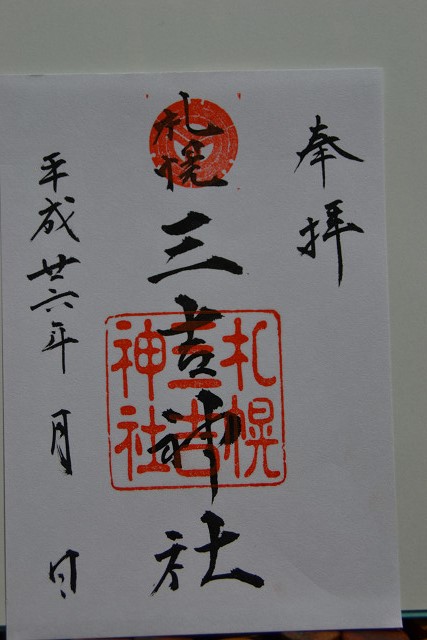 奉拝
札幌
三吉神社
札幌
三吉
神社
平成廿六年 月 日